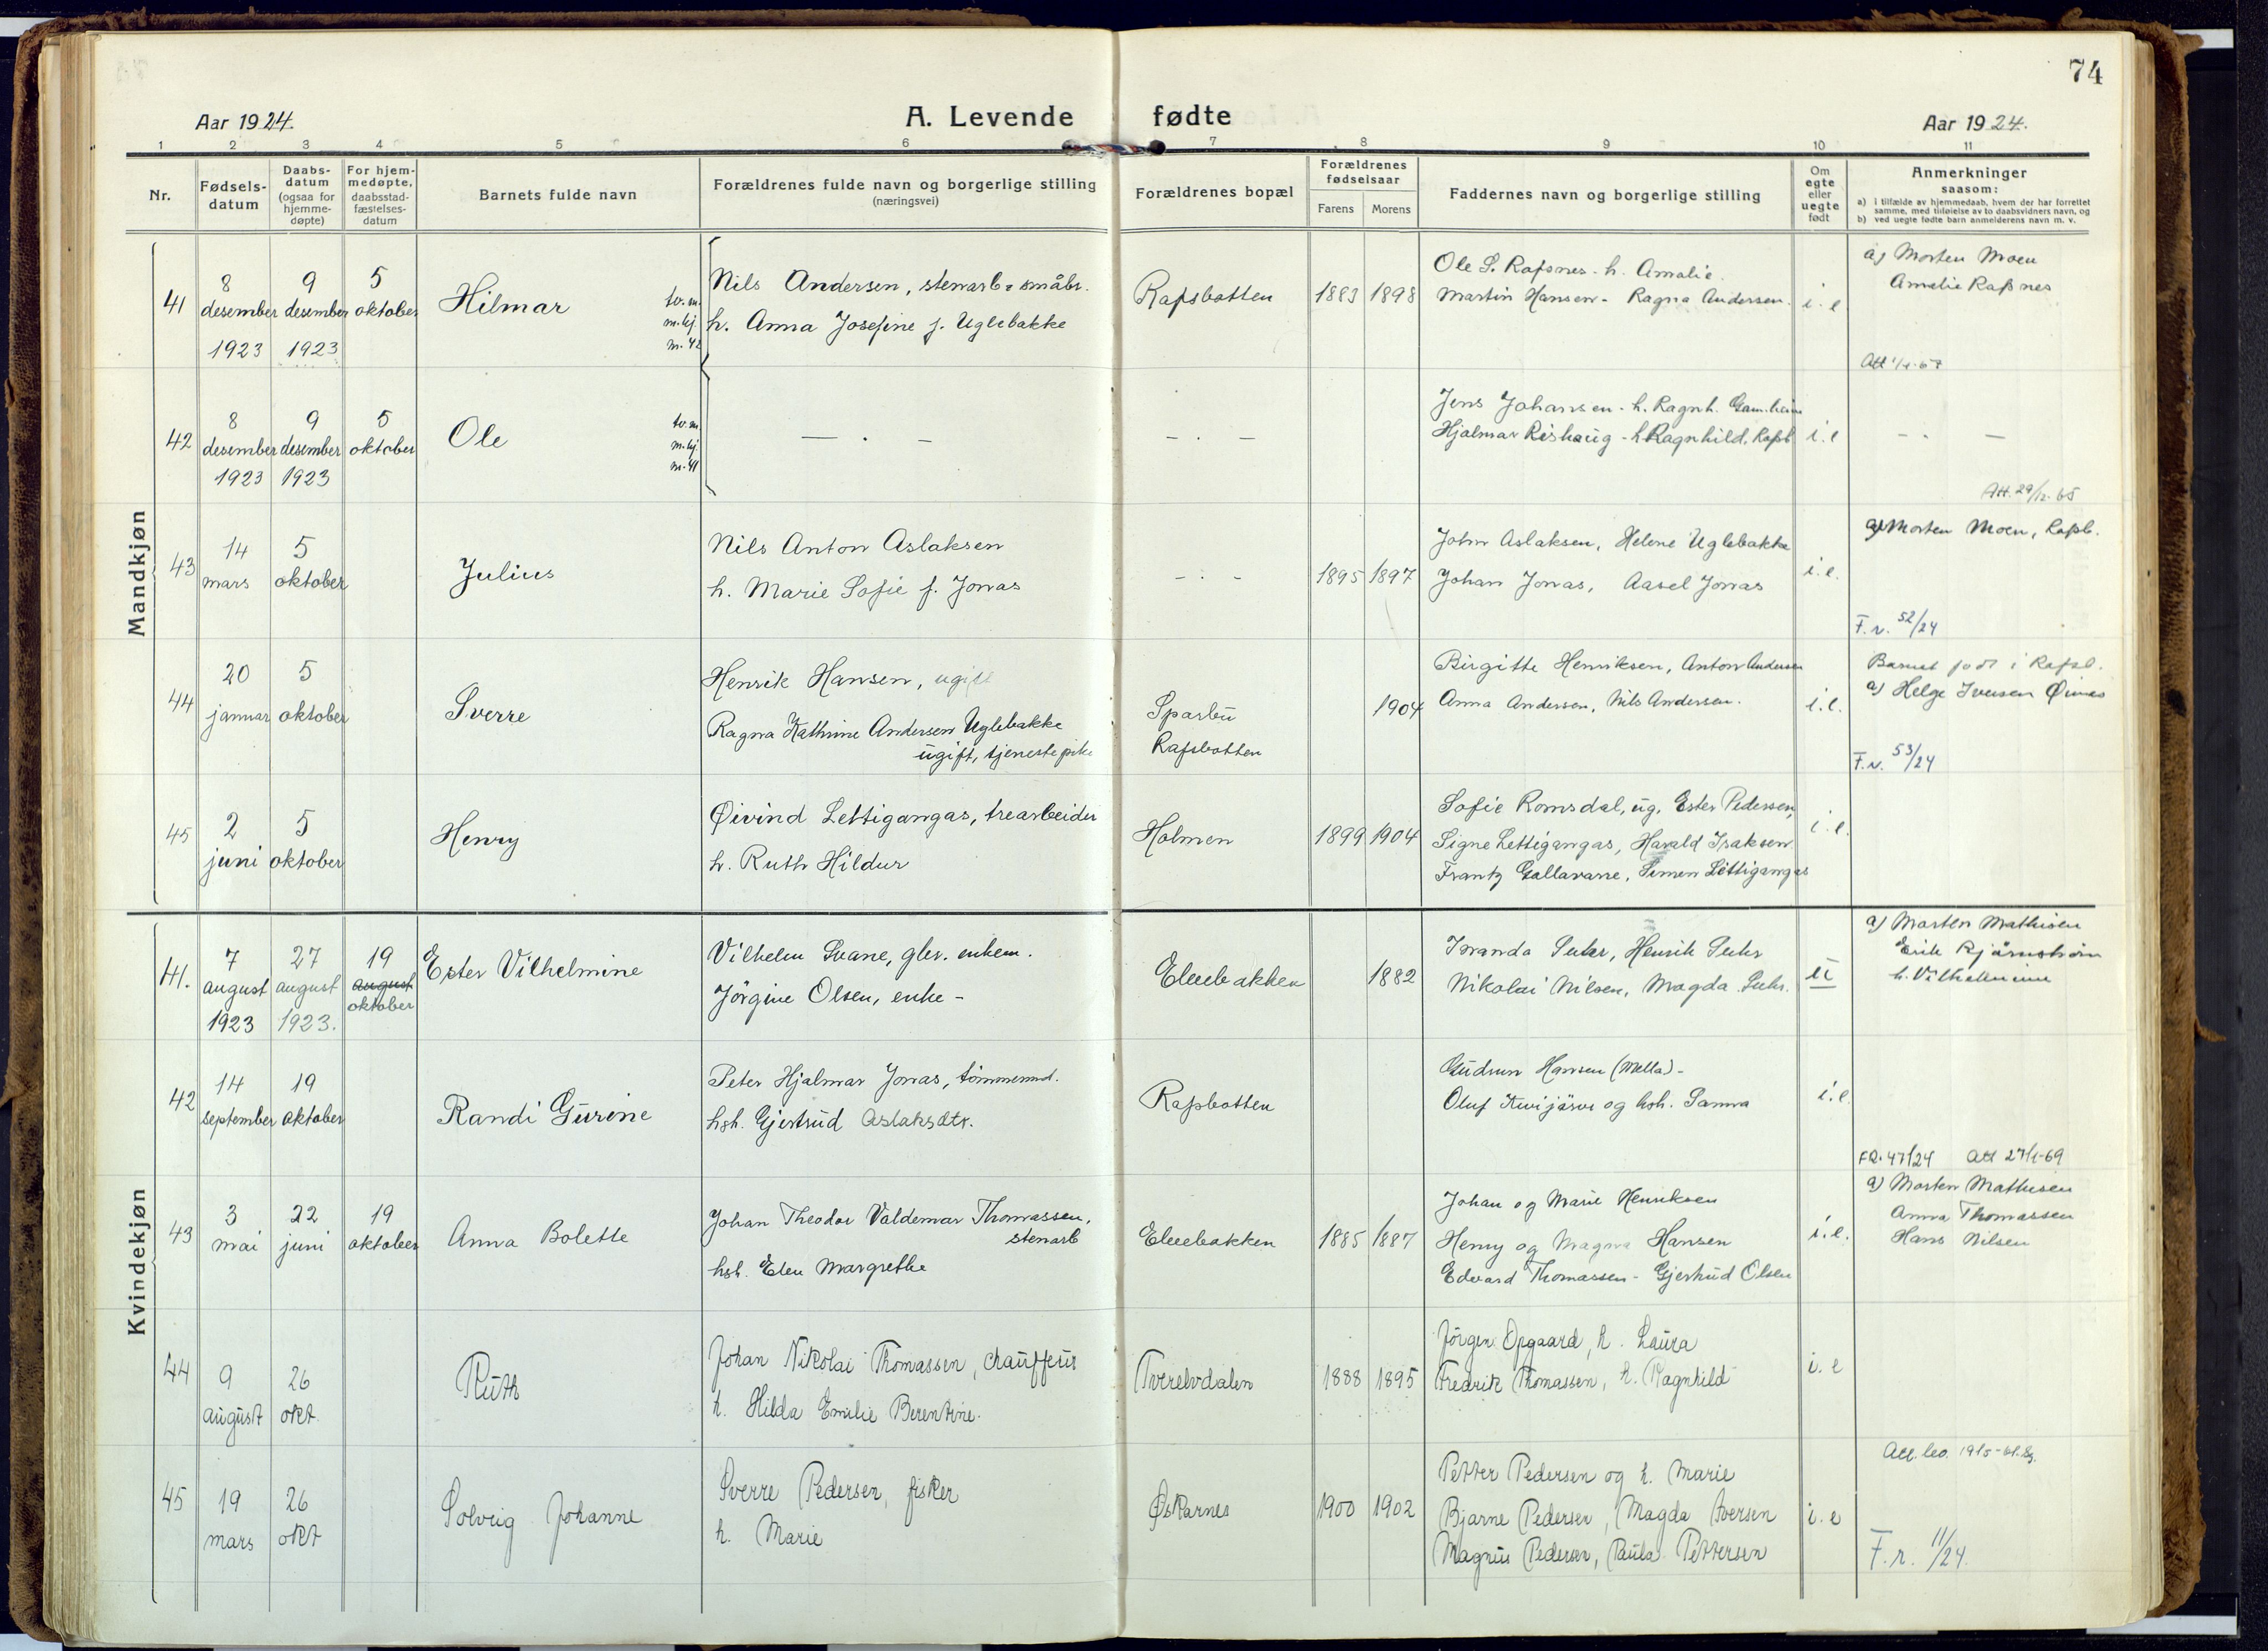 74
Aar 1924.
A. Levende fødte
Aar 1924.
1 2 3 4 5 6 7 8 9 10 11
Nr.
Fødsels-
datum
Daabs-
datum
(ogsaa for
hjemme-
døpte)
For hjem-
medøpte,
daabsstad-
fæstelses-
datum
Barnets fulde navn
Forældrenes fulde navn og borgerlige stilling
(næringsvei)
Forældrenes bopæl
Forældrenes
fødselsaar
Farens Morens
Faddernes navn og borgerlige stilling
Om
egte
eller
uegte
født
Anmerkninger
saasom:
a) i tilfælde av hjemmedaab, hvem der har forrettet
samme, med tilføielse av to daabsvidners navn, og
b) ved uegte fødte barn anmelderens navn m. v.
Mandkjøn
41
8
desember
1923
9
desember
1923
5
oktober
Hilmar
tv. m.
m. kj.
m. 42
Nils Andersen, stenarb = småbr.
h. Anna Josefine f. Uglebakke
Rafsbotten
1883 1898
Ole S. Rafsnes - h. Amalie.
Martin Hansen - Ragna Andersen.
i. e
a) Morten Moen
Amalie Rafsnes
42
8
desember
1923
9
desember
1923
5
oktober
Ole
tv. m.
m. kj.
m. 41
— . —
— . —
Jens Johansen - h. Ragnh.
Hjalmar Rishaug - h Ragnhild, Rafsb
i. e
— . —
Att. 29/12-65
43
14
mars
5
oktober
Julius
Nils Anton Aslaksen
h. Marie Sofie f. Jonas
— . —
1895 1897
John Aslaksen, Helene Uglebakke
Johan Jonas, Aasel Jonas
i. e.
a) Morten Moen, Rafsb.
F. r. 52/24
44
20
januar
5
oktober
Sverre
Henrik Hansen, ugift
Ragna Kathrine Andersen Uglebakke
ugift, tjenestepike
Sparbu
Rafsbotten
1904
Birgitte Henriksen, Anton Andersen
Anna Andersen, Nils Andersen.
i. e.
Barnet født i Rafsb.
a) Helge Iversen
F. r. 53/24
45
2
juni
5
oktober
Henry
Øivind Lettigangas, trearbeider
h. Ruth Hildur
Holmen
1899 1904
Sofie Romsdal, ug, Ester Pedersen,
Signe Lettigangas, Harald Isaksen
Frantz Gallavarre, Simen Lettigangas
i. e.
Kvindekjøn
41.
7
august
1923
27
august
1923.
19
august
oktober
Ester Vilhelmine
Vilhelm Svane, glsv. enkem.
Jörgine Olsen, enke -
Elvebakken
1882
Suhr, Henrik Suhr
Nikolai Nilsen, Magda Suhr.
u
a) Morten Mathisen
Erik
h. Vilhelmine
42
14
september
19
oktober
Randi Gurine
Peter Hjalmar Jonas, tömmermd.
hsh. Gjertrud Aslaksdtr.
Rafsbotten
Gudrun Hansen (Mella) -
Oluf Kivijärvi og hsh. Sanna
i. e.
FR. 47/24 Att 27/1-69
43
3
mai
22
juni
19
oktober
Anna Bolette
Johan Theodor Valdemar Thomassen,
stenarb
hsh. Elen Margrethe
Elvebakken
1885 1887
Johan og Marie Henriksen
Henry og Magna Hansen
Edvard Thomassen - Gjertrud Olsen
i. e.
a) Morten Mathisen
Anna Thomassen
Hans Nilsen
44
9
august
26
okt.
Ruth
Johan Nikolai Thomassen, chauffeur
h. Hilda Emilie Berentine.
Tverelvdalen
1888 1895
Jörgen Opgaard, h. Laura
Fredrik Thomassen, h. Ragnhild
i. e
45
19
mars
26
okt
Solveig Johanne
Sverre Pedersen, fisker
h. Marie
Øskarnes
1900 1902
Petter Pedersen og h. Marie
Bjarne Pedersen, Magda Iversen
Magnus Pedersen, Paula Pettersen
i. e
F. r. 11/24.